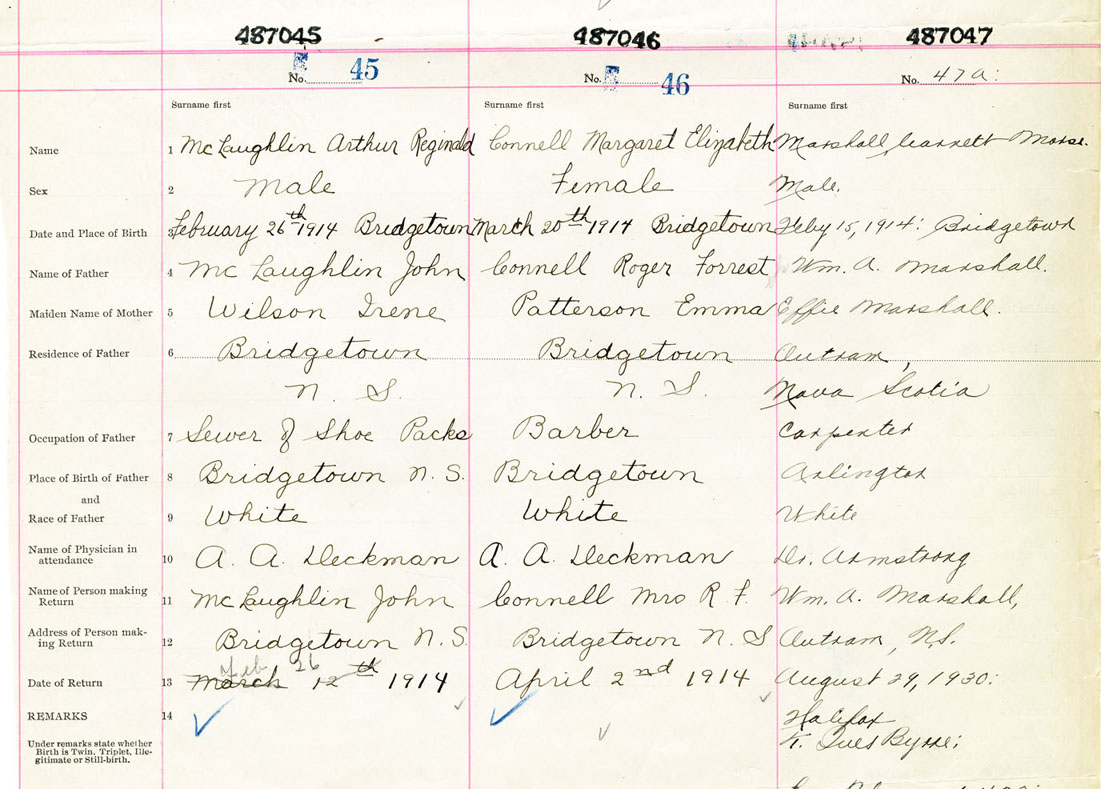 487045 487046 487047
No. 45 No. 46 No. 47a:
Surname first Surname first Surname first
Name 1 McLaughlin Arthur Reginald Connell Margaret Elizabeth Marshall, Garnett Morse.
Sex 2 Male Female Male.
Date and Place of Birth 3 February 26th 1914 Bridgetown March 20th 1914 Bridgetown Feby 15, 1914: Bridgetown
Name of Father 4 McLaughlin John Connell Roger Forrest Wm. A. Marshall.
Maiden Name of Mother 5 Wilson Irene Patterson Emma Effie Marshall.
Residence of Father 6 Bridgetown Bridgetown Outram,
N. S. N. S. Nova Scotia
Occupation of Father 7 Sewer of Shoe Packs Barber Carpenter
Place of Birth of Father 8 Bridgetown N. S. Bridgetown Arlington
and
Race of Father 9 White White White
Name of Physician in
attendance 10 A. A. Deckman A. A. Deckman Dr. Armstrong
Name of Person making
Return 11 McLaughlin John Connell Mrs R. F. Wm. A. Marshall,
Address of Person mak-
ing Return 12 Bridgetown N. S. Bridgetown N. S Outram, N.S.
Feb 26
Date of Return 13 March 12th 1914 April 2nd 1914 August 29, 1930:
REMARKS 14 Halifax
Under remarks state whether
Birth is Twin, Triplet, Ille-
gitimate or Still-birth.